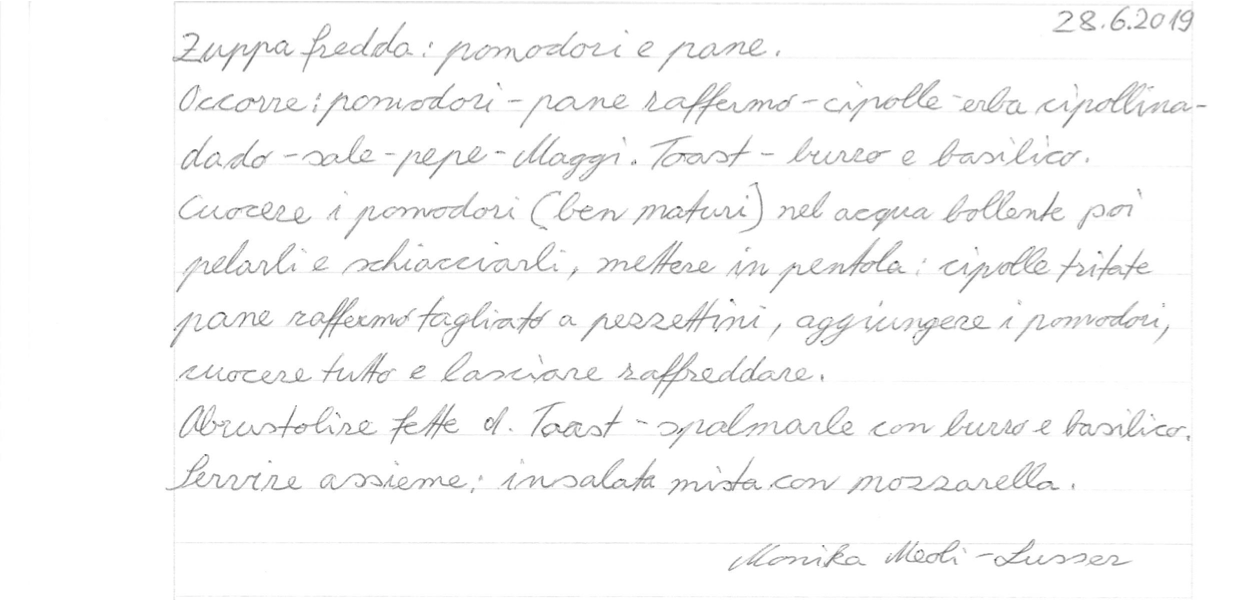 28.6.2019
Zuppa fredda: pomodori e pane.
Occorre: pomodori - pane raffermo - cipolle - erba cipollina -
dado - sale - pepe - Maggi. Toast - burro e basilico.
Cuocere i pomodori (ben maturi) nel acqua bollente poi
pelarli e schiacciarli, mettere in pentola: cipolle tritate
pane raffermo tagliato a pezzettini, aggiungere i pomodori,
cuocere tutto e lasciare raffreddare.
Abrustolire fette d. Toast - spalmarle con burro e basilico.
Servire assieme: insalata mista con mozzarella.
Monika Meoli - Lusser